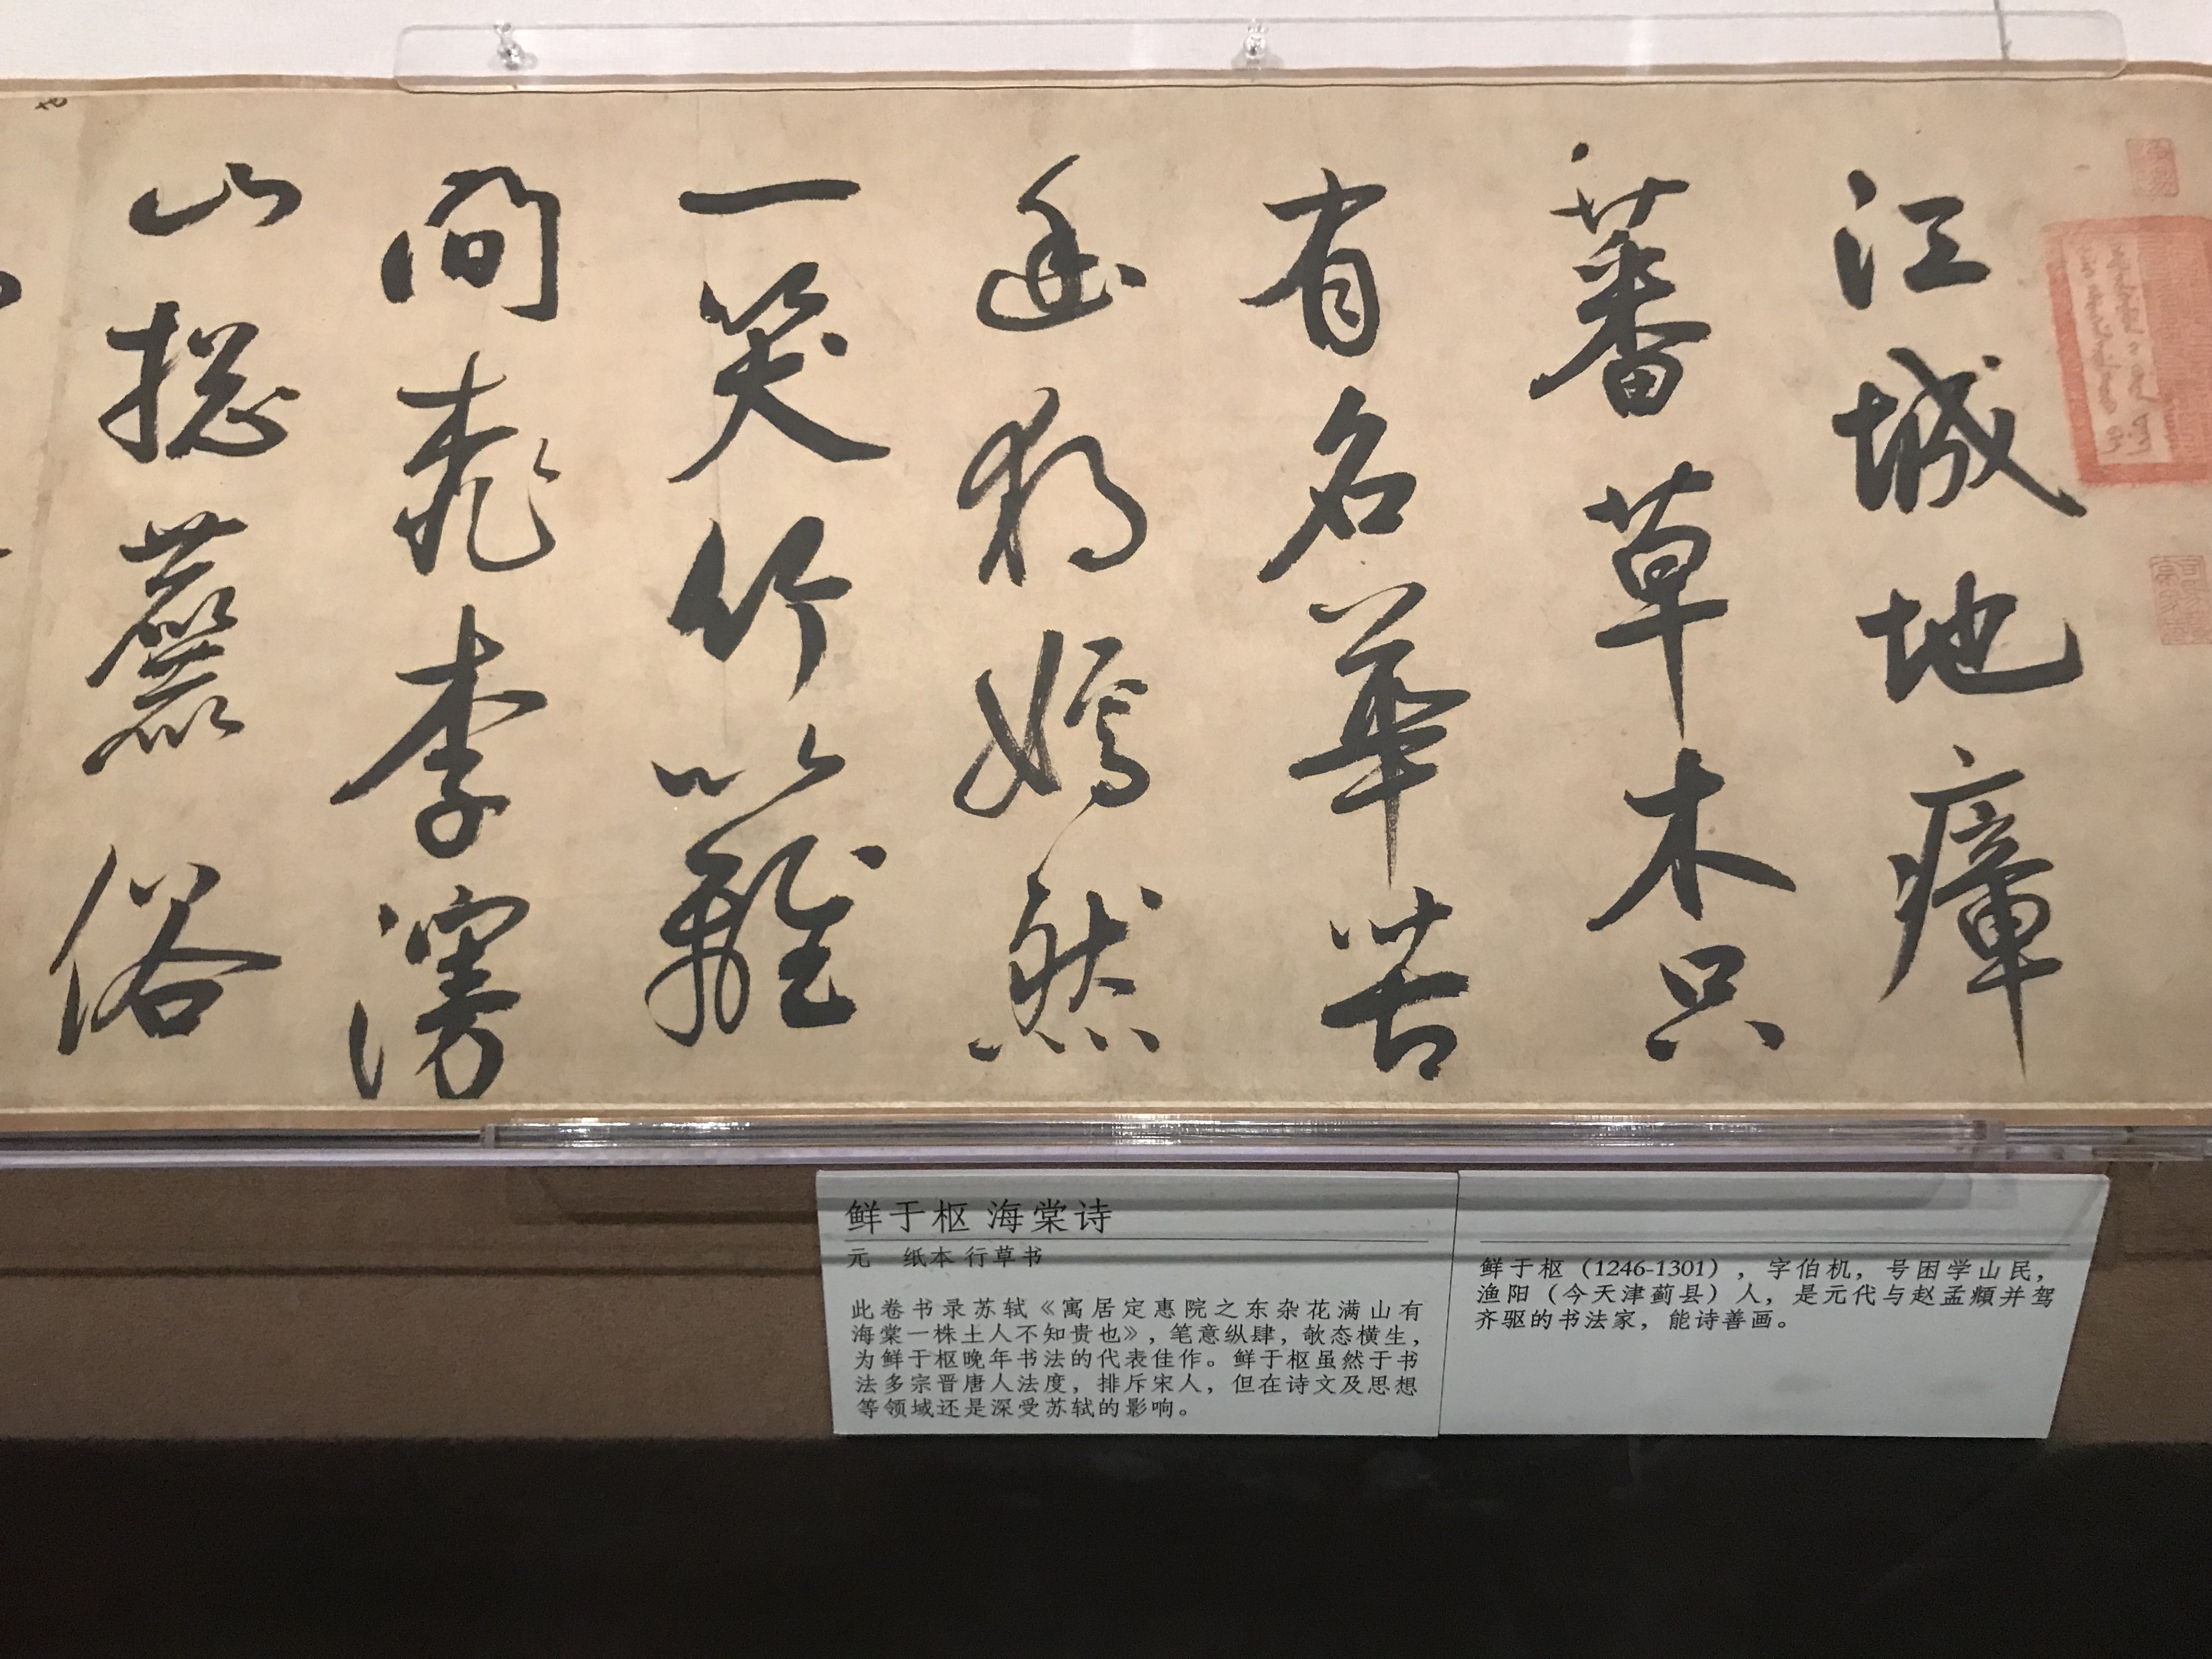 江城地瘴
蕃草木只
有名華苦
幽獨嫣然
一笑竹籬
間桃李漫
山揔麄俗
鲜于枢 海棠诗
元 纸本 行草书
此卷书录苏轼《寓居定惠院之东杂花满山有
海棠一株土人不知贵也》，笔意纵肆，欹态横生，
为鲜于枢晚年书法的代表佳作。鲜于枢虽然于书
法多宗晋唐人法度，排斥宋人，但在诗文及思想
等领域还是深受苏轼的影响。
鲜于枢（1246-1301），字伯机，号困学山民，
渔阳（今天津蓟县）人，是元代与赵孟頫并驾
齐驱的书法家，能诗善画。